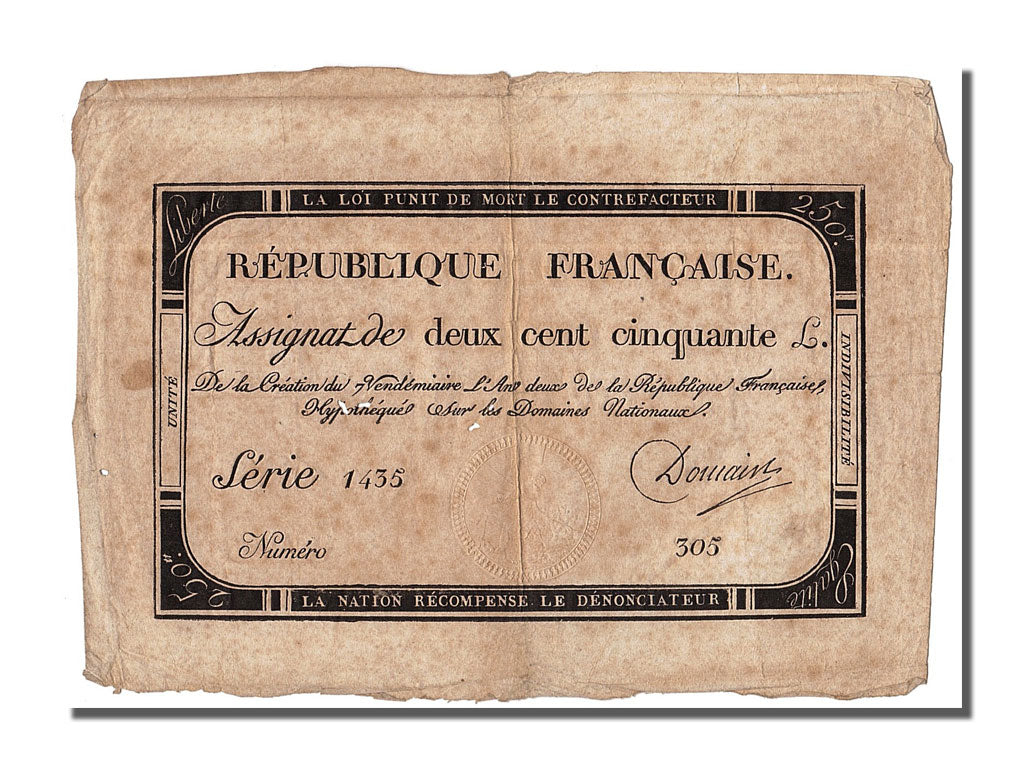 Liberté
LA LOI PUNIT DE MORT LE CONTREFACTEUR
250.tt
RÉPUBLIQUE FRANÇAISE.
Assignat de deux cent cinquante L.
De la Création du 7 Vendémiaire L'An deux de la République Française,
Hypothéqué Sur les Domaines Nationaux.
UNITÉ
INDIVISIBILITÉ
Série 1435
Domain
Numéro
305
250.tt
LA NATION RÉCOMPENSE LE DÉNONCIATEUR
Egalité